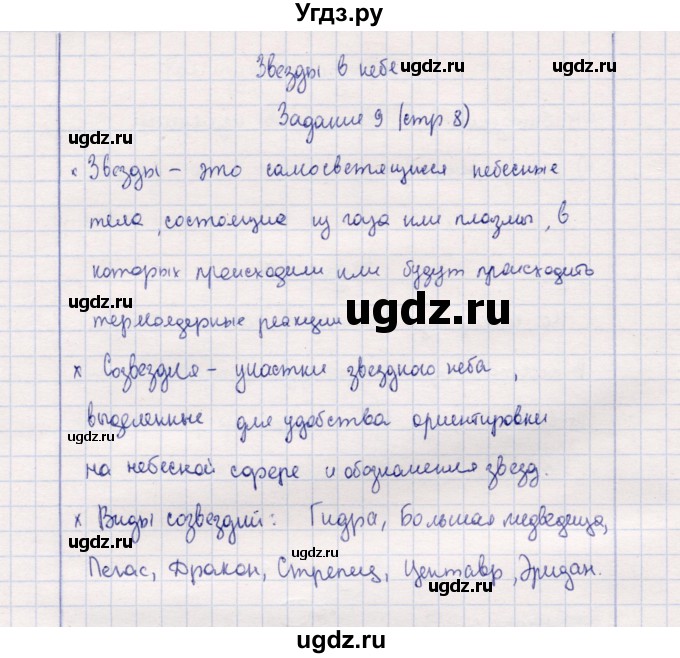 Угдз.ру
Звезды в небе
ugdz.ru ugdz.ru
Задание 9 (стр 8)
ugdz.ru
× Звезды – это самосветящиеся небесные
тела, состоящие из газа или плазмы, в
ugdz.ru ugdz.ru
которых происходили или будут происходить
ugdz.ru
термоядерные реакции
ugdz.ru
× Созвездия – участки звездного неба,
ugdz.ru ugdz.ru
выделенные для удобства ориентировки
ugdz.ru
на небесной сфере и обозначения звезд.
× Виды созвездий: Гидра, Большая медведица,
ugdz.ru ugdz.ru
ugdz.ru
Пегас, Дракон, Стрелец, Центавр, Эридан.
ugdz.ru